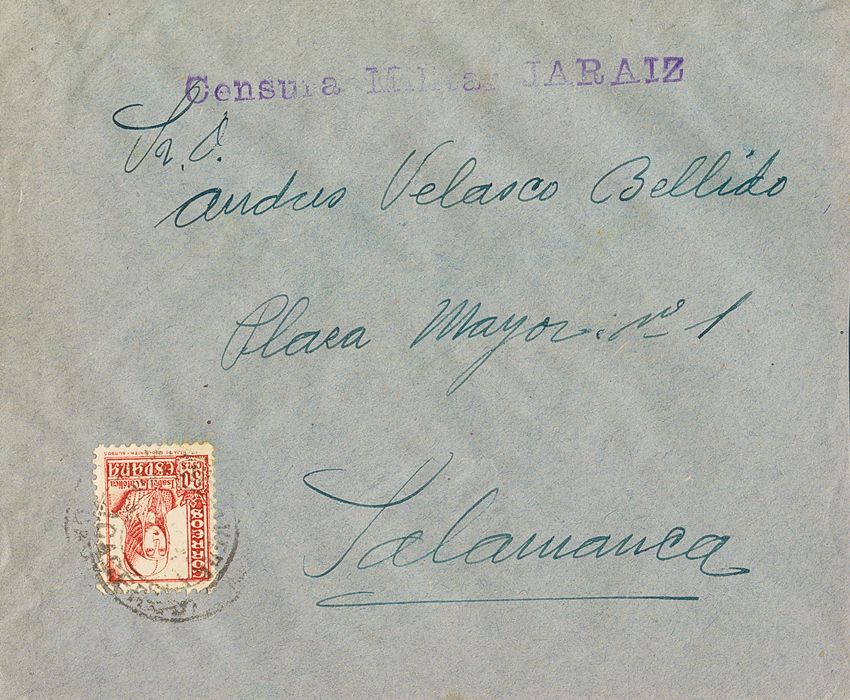 Censura Militar JARAIZ
Sr. D.
Andres Velasco Bellido
Plaza Mayor. nº 1
Salamanca
CORREOS
30 CTS
Isabel la Católica
ESPAÑA